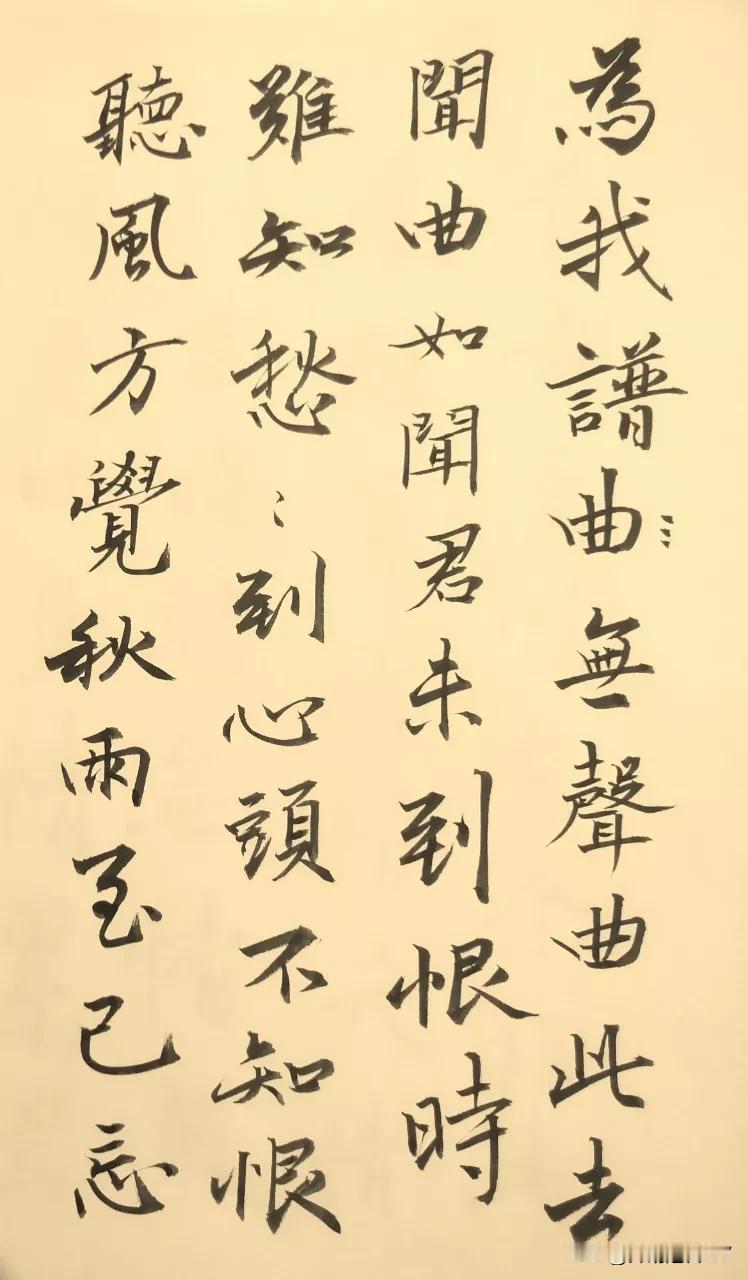 為我譜曲⺀無聲曲此去
聞曲如聞君未到恨時
難知愁⺀到心頭不知恨
聽風方覺秋雨至已忘